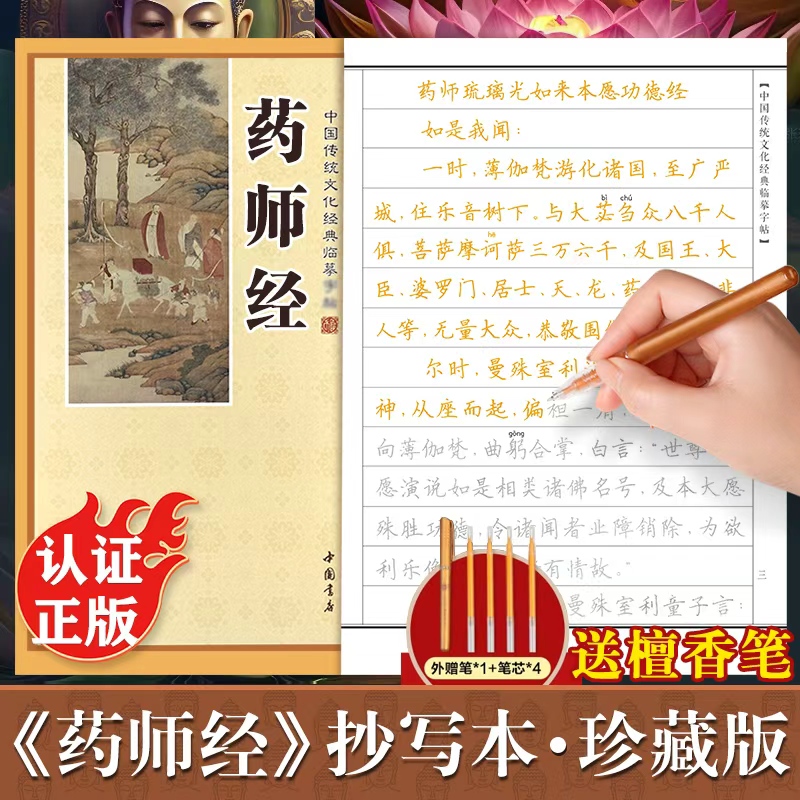 药师经
中国传统文化经典临摹
中国书店
认证
正版
【中国传统文化经典临摹字帖】
药师琉璃光如来本愿功德经
如是我闻：
一时，薄伽梵游化诸国，至广严
bì chú
城，住乐音树下。与大苾刍众八千人
hē
俱，菩萨摩诃萨三万六千，及国王、大
臣、婆罗门、居士、天、龙、药
人等，无量大众，恭敬围
尔时，曼殊室利
神，从座而起，偏袒一肩，
gōng
向薄伽梵，曲躬合掌，白言：“世尊
愿演说如是相类诸佛名号，及本大愿
殊胜功德，令诸闻者业障销除，为欲
利乐像 有情故。”
曼殊室利童子言：
三
外赠笔*1+笔芯*4
送檀香笔
《药师经》抄写本·珍藏版